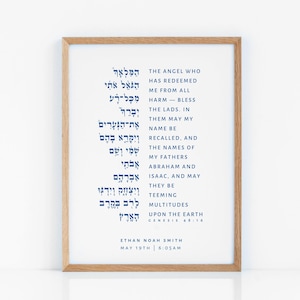 הַמַּלְאָךְ
הַגֹּאֵל אֹתִי
מִכָּל־רָע
יְבָרֵךְ
אֶת־הַנְּעָרִים
וְיִקָּרֵא בָהֶם
שְׁמִי וְשֵׁם
אֲבֹתַי
אַבְרָהָם
וְיִצְחָק וְיִדְגּוּ
לָרֹב בְּקֶרֶב
הָאָרֶץ
THE ANGEL WHO
HAS REDEEMED
ME FROM ALL
HARM — BLESS
THE LADS. IN
THEM MAY MY
NAME BE
RECALLED, AND
THE NAMES OF
MY FATHERS
ABRAHAM AND
ISAAC, AND MAY
THEY BE
TEEMING
MULTITUDES
UPON THE EARTH
GENESIS 48:16
ETHAN NOAH SMITH
MAY 19TH | 6:03AM